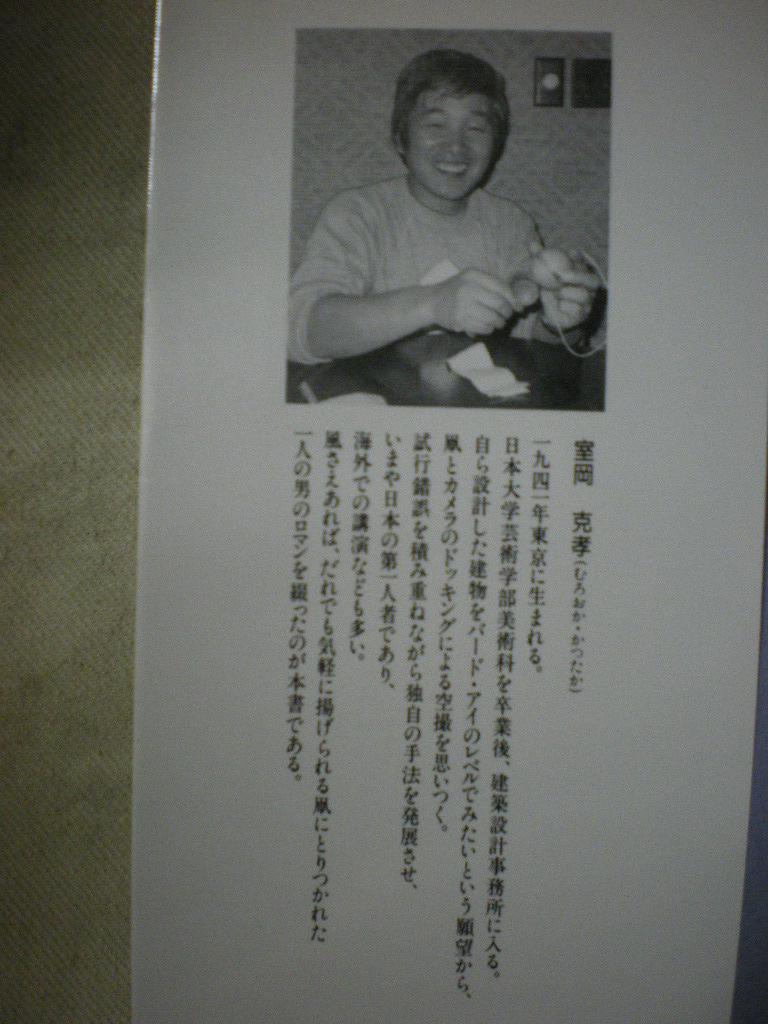 室岡 克孝(むろおか・かつたか)
一九四一年東京に生まれる。
日本大学芸術学部美術科を卒業後、建築設計事務所に入る。
自ら設計した建物をバード・アイのレベルでみたいという願望から、
凧とカメラのドッキングによる空撮を思いつく。
試行錯誤を積み重ねながら独自の手法を発展させ、
いまや日本の第一人者であり、
海外での講演なども多い。
風さえあれば、だれでも気軽に揚げられる凧にとりつかれた
一人の男のロマンを綴ったのが本書である。